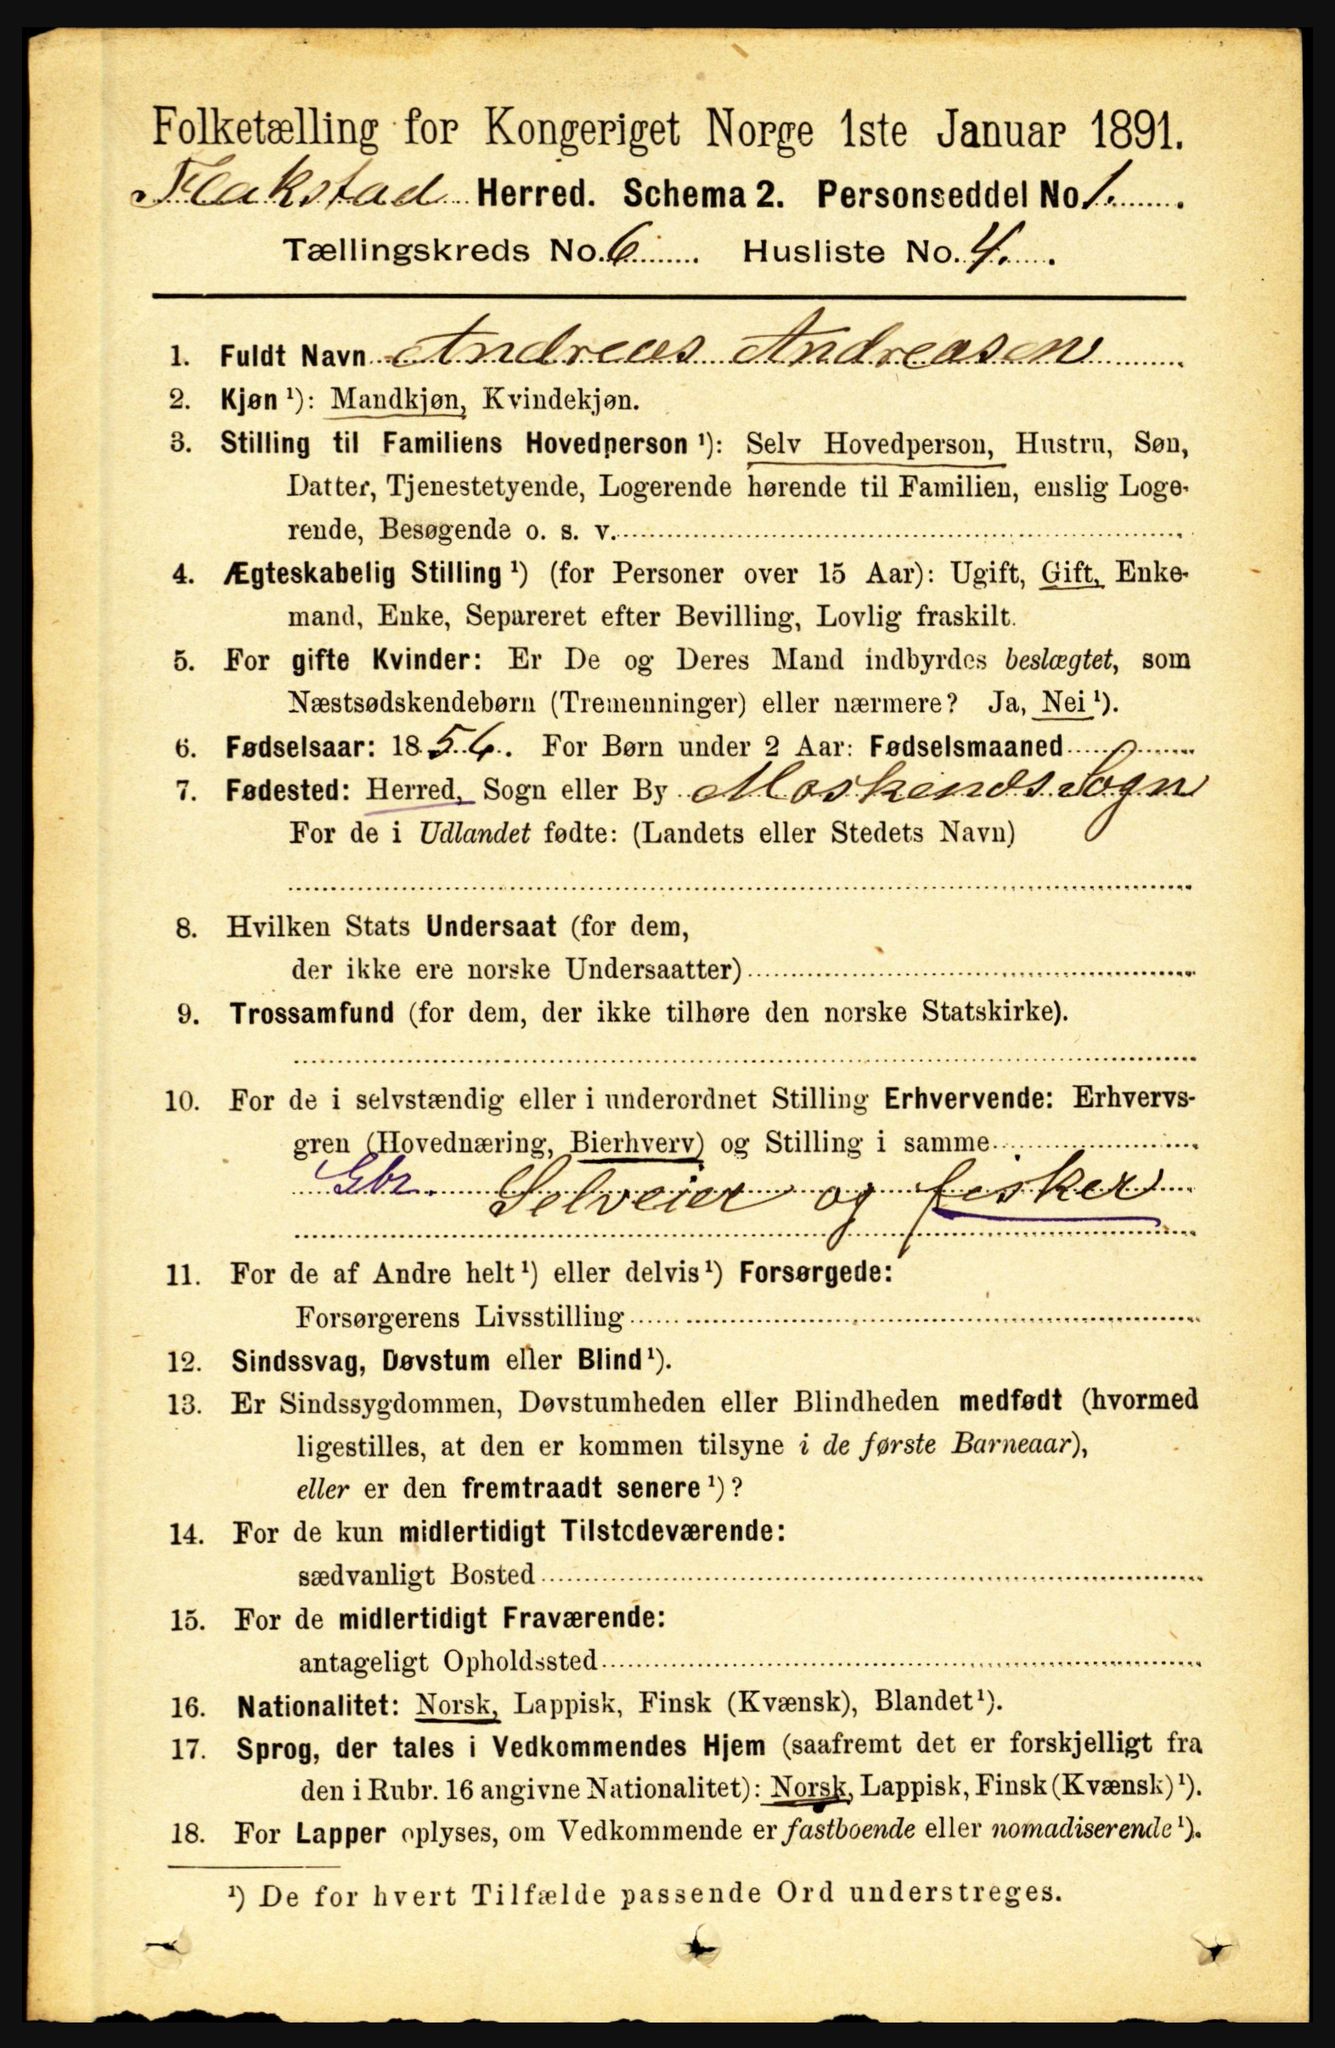 Folketælling for Kongeriget Norge 1ste Januar 1891.
Flakstad Herred. Schema 2. Personseddel No 1.
Tællingskreds No. 6 Husliste No. 4.
1. Fuldt Navn Andreas Andreasen
2. Kjøn ¹): Mandkjøn, Kvindekjøn.
3. Stilling til Familiens Hovedperson ¹): Selv Hovedperson, Hustru, Søn,
Datter, Tjenestetyende, Logerende hørende til Familien, enslig Loge-
rende, Besøgende o. s. v.
4. Ægteskabelig Stilling ¹) (for Personer over 15 Aar): Ugift, Gift, Enke-
mand, Enke, Separeret efter Bevilling, Lovlig fraskilt.
5. For gifte Kvinder: Er De og Deres Mand indbyrdes beslægtet, som
Næstsødskendebørn (Tremenninger) eller nærmere? Ja, Nei ¹).
6. Fødselsaar: 1856. For Børn under 2 Aar: Fødselsmaaned
7. Fødested: Herred, Sogn eller By Moskenes Sogn
For de i Udlandet fødte: (Landets eller Stedets Navn)
8. Hvilken Stats Undersaat (for dem,
der ikke ere norske Undersaatter)
9. Trossamfund (for dem, der ikke tilhøre den norske Statskirke).
10. For de i selvstændig eller i underordnet Stilling Erhvervende: Erhvervs-
gren (Hovednæring, Bierhverv) og Stilling i samme
Gbr. Selveier og fisker
11. For de af Andre helt ¹) eller delvis ¹) Forsørgede:
Forsørgerens Livsstilling
12. Sindssvag, Døvstum eller Blind ¹).
13. Er Sindssygdommen, Døvstumheden eller Blindheden medfødt (hvormed
ligestilles, at den er kommen tilsyne i de første Barneaar),
eller er den fremtraadt senere ¹)?
14. For de kun midlertidigt Tilstedeværende:
sædvanligt Bosted
15. For de midlertidigt Fraværende:
antageligt Opholdssted
16. Nationalitet: Norsk, Lappisk, Finsk (Kvænsk), Blandet ¹).
17. Sprog, der tales i Vedkommendes Hjem (saafremt det er forskjelligt fra
den i Rubr. 16 angivne Nationalitet): Norsk, Lappisk, Finsk (Kvænsk) ¹).
18. For Lapper oplyses, om Vedkommende er fastboende eller nomadiserende ¹).
¹) De for hvert Tilfælde passende Ord understreges.